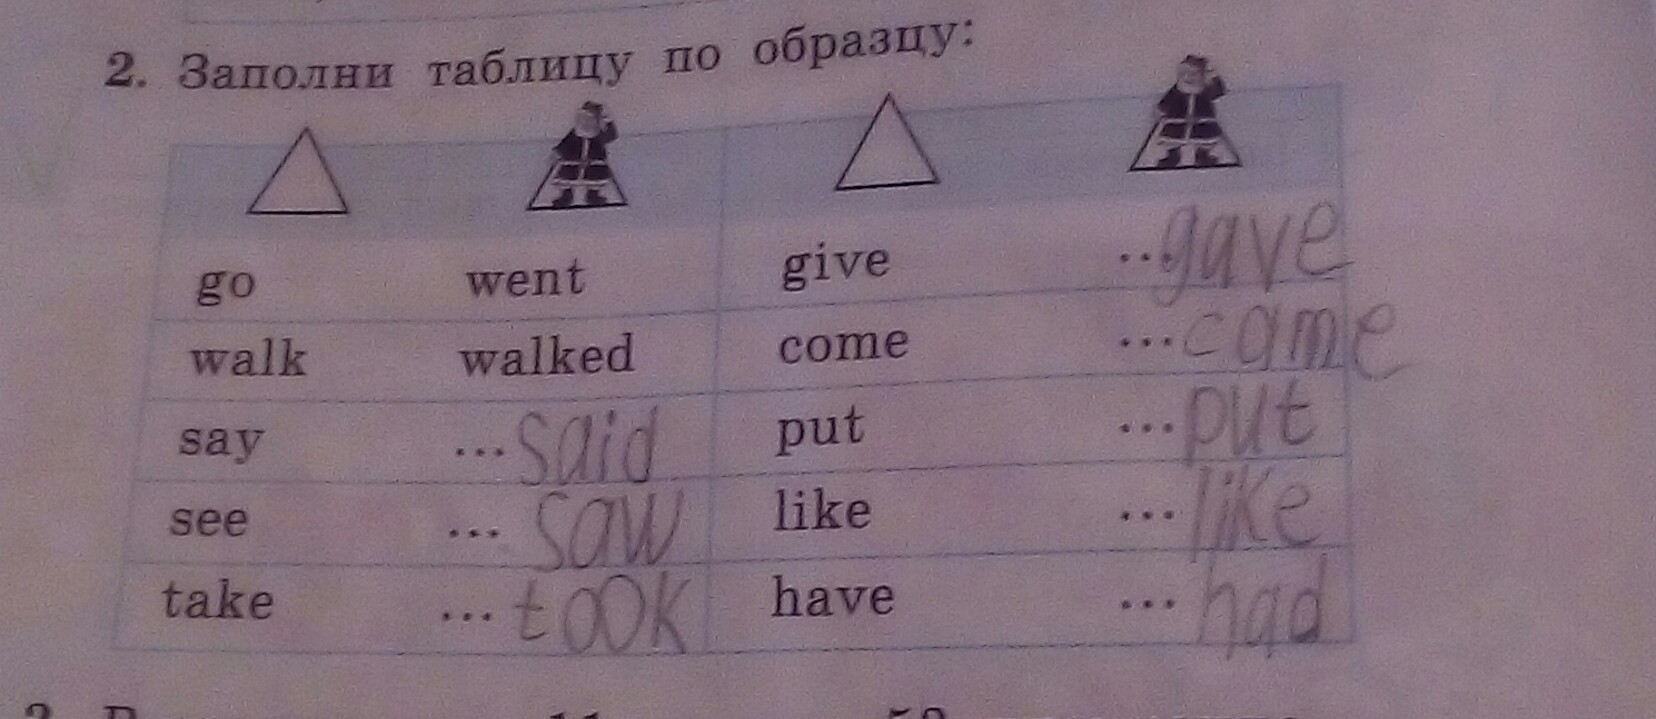 2. Заполни таблицу по образцу:
go went give ..gave
walk walked come ...came
say ...said put ...put
see ... saw like ...like
take ...took have ... had